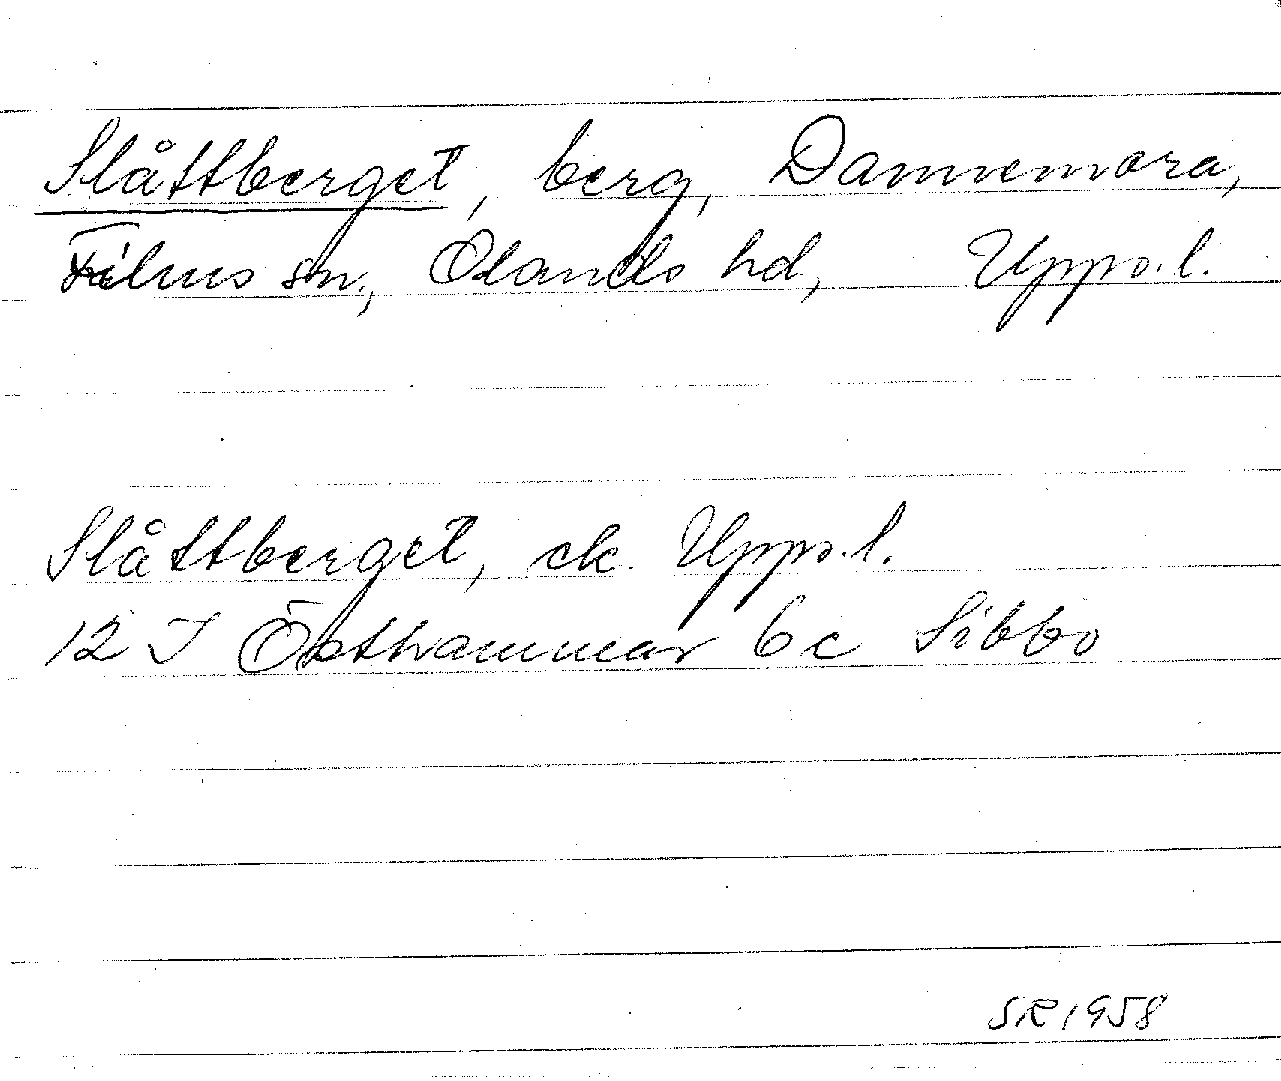 Slåttberget, berg, Dannemora,
Films sn, Olands hd, Upps.l.
Slåttberget, ek Upps.l.
12 I Östhammar 6c Sibbo
SR 1958